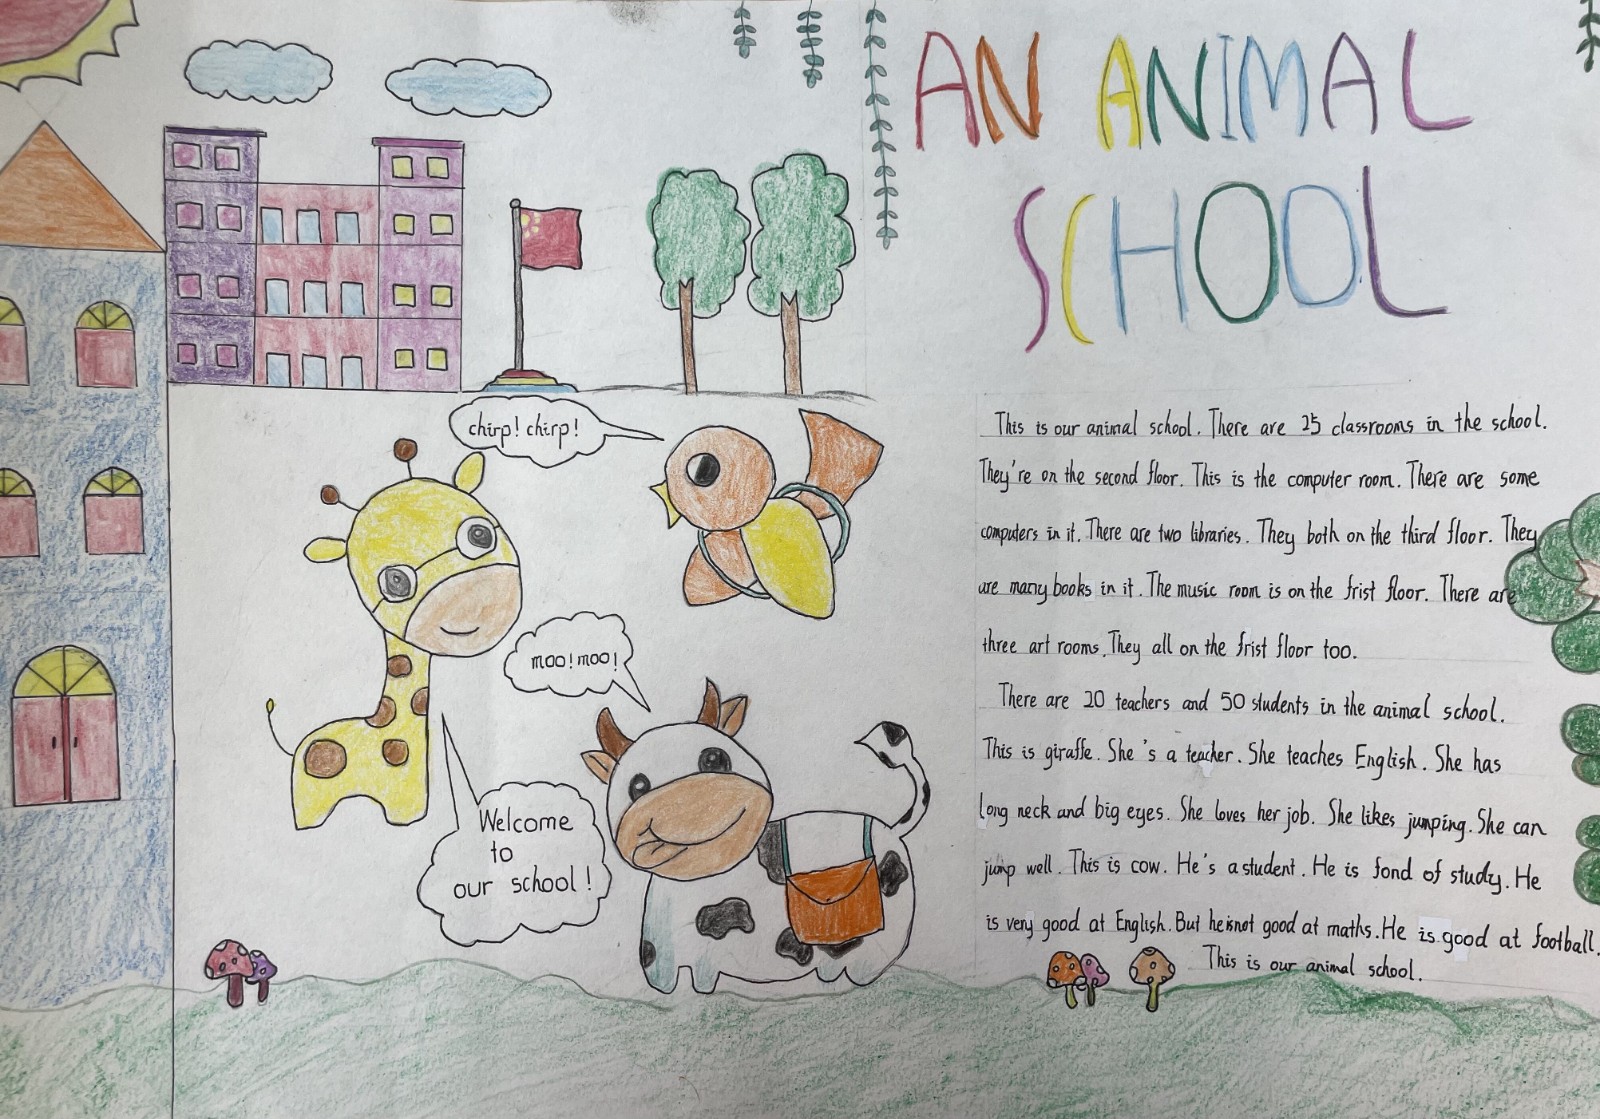 AN ANIMAL
SCHOOL
chirp! chirp!
moo! moo!
Welcome
to
our school!
This is our animal school. There are 25 classrooms in the school.
They're on the second floor. This is the computer room. There are some
computers in it. There are two libraries. They both on the third floor. They
are many books in it. The music room is on the frist floor. There are
three art rooms. They all on the frist floor too.
There are 20 teachers and 50 students in the animal school.
This is giraffe. She's a teacher. She teaches English. She has
long neck and big eyes. She loves her job. She likes jumping. She can
jump well. This is cow. He's a student. He is fond of study. He
is very good at English. But he is not good at maths. He is good at football.
This is our animal school.